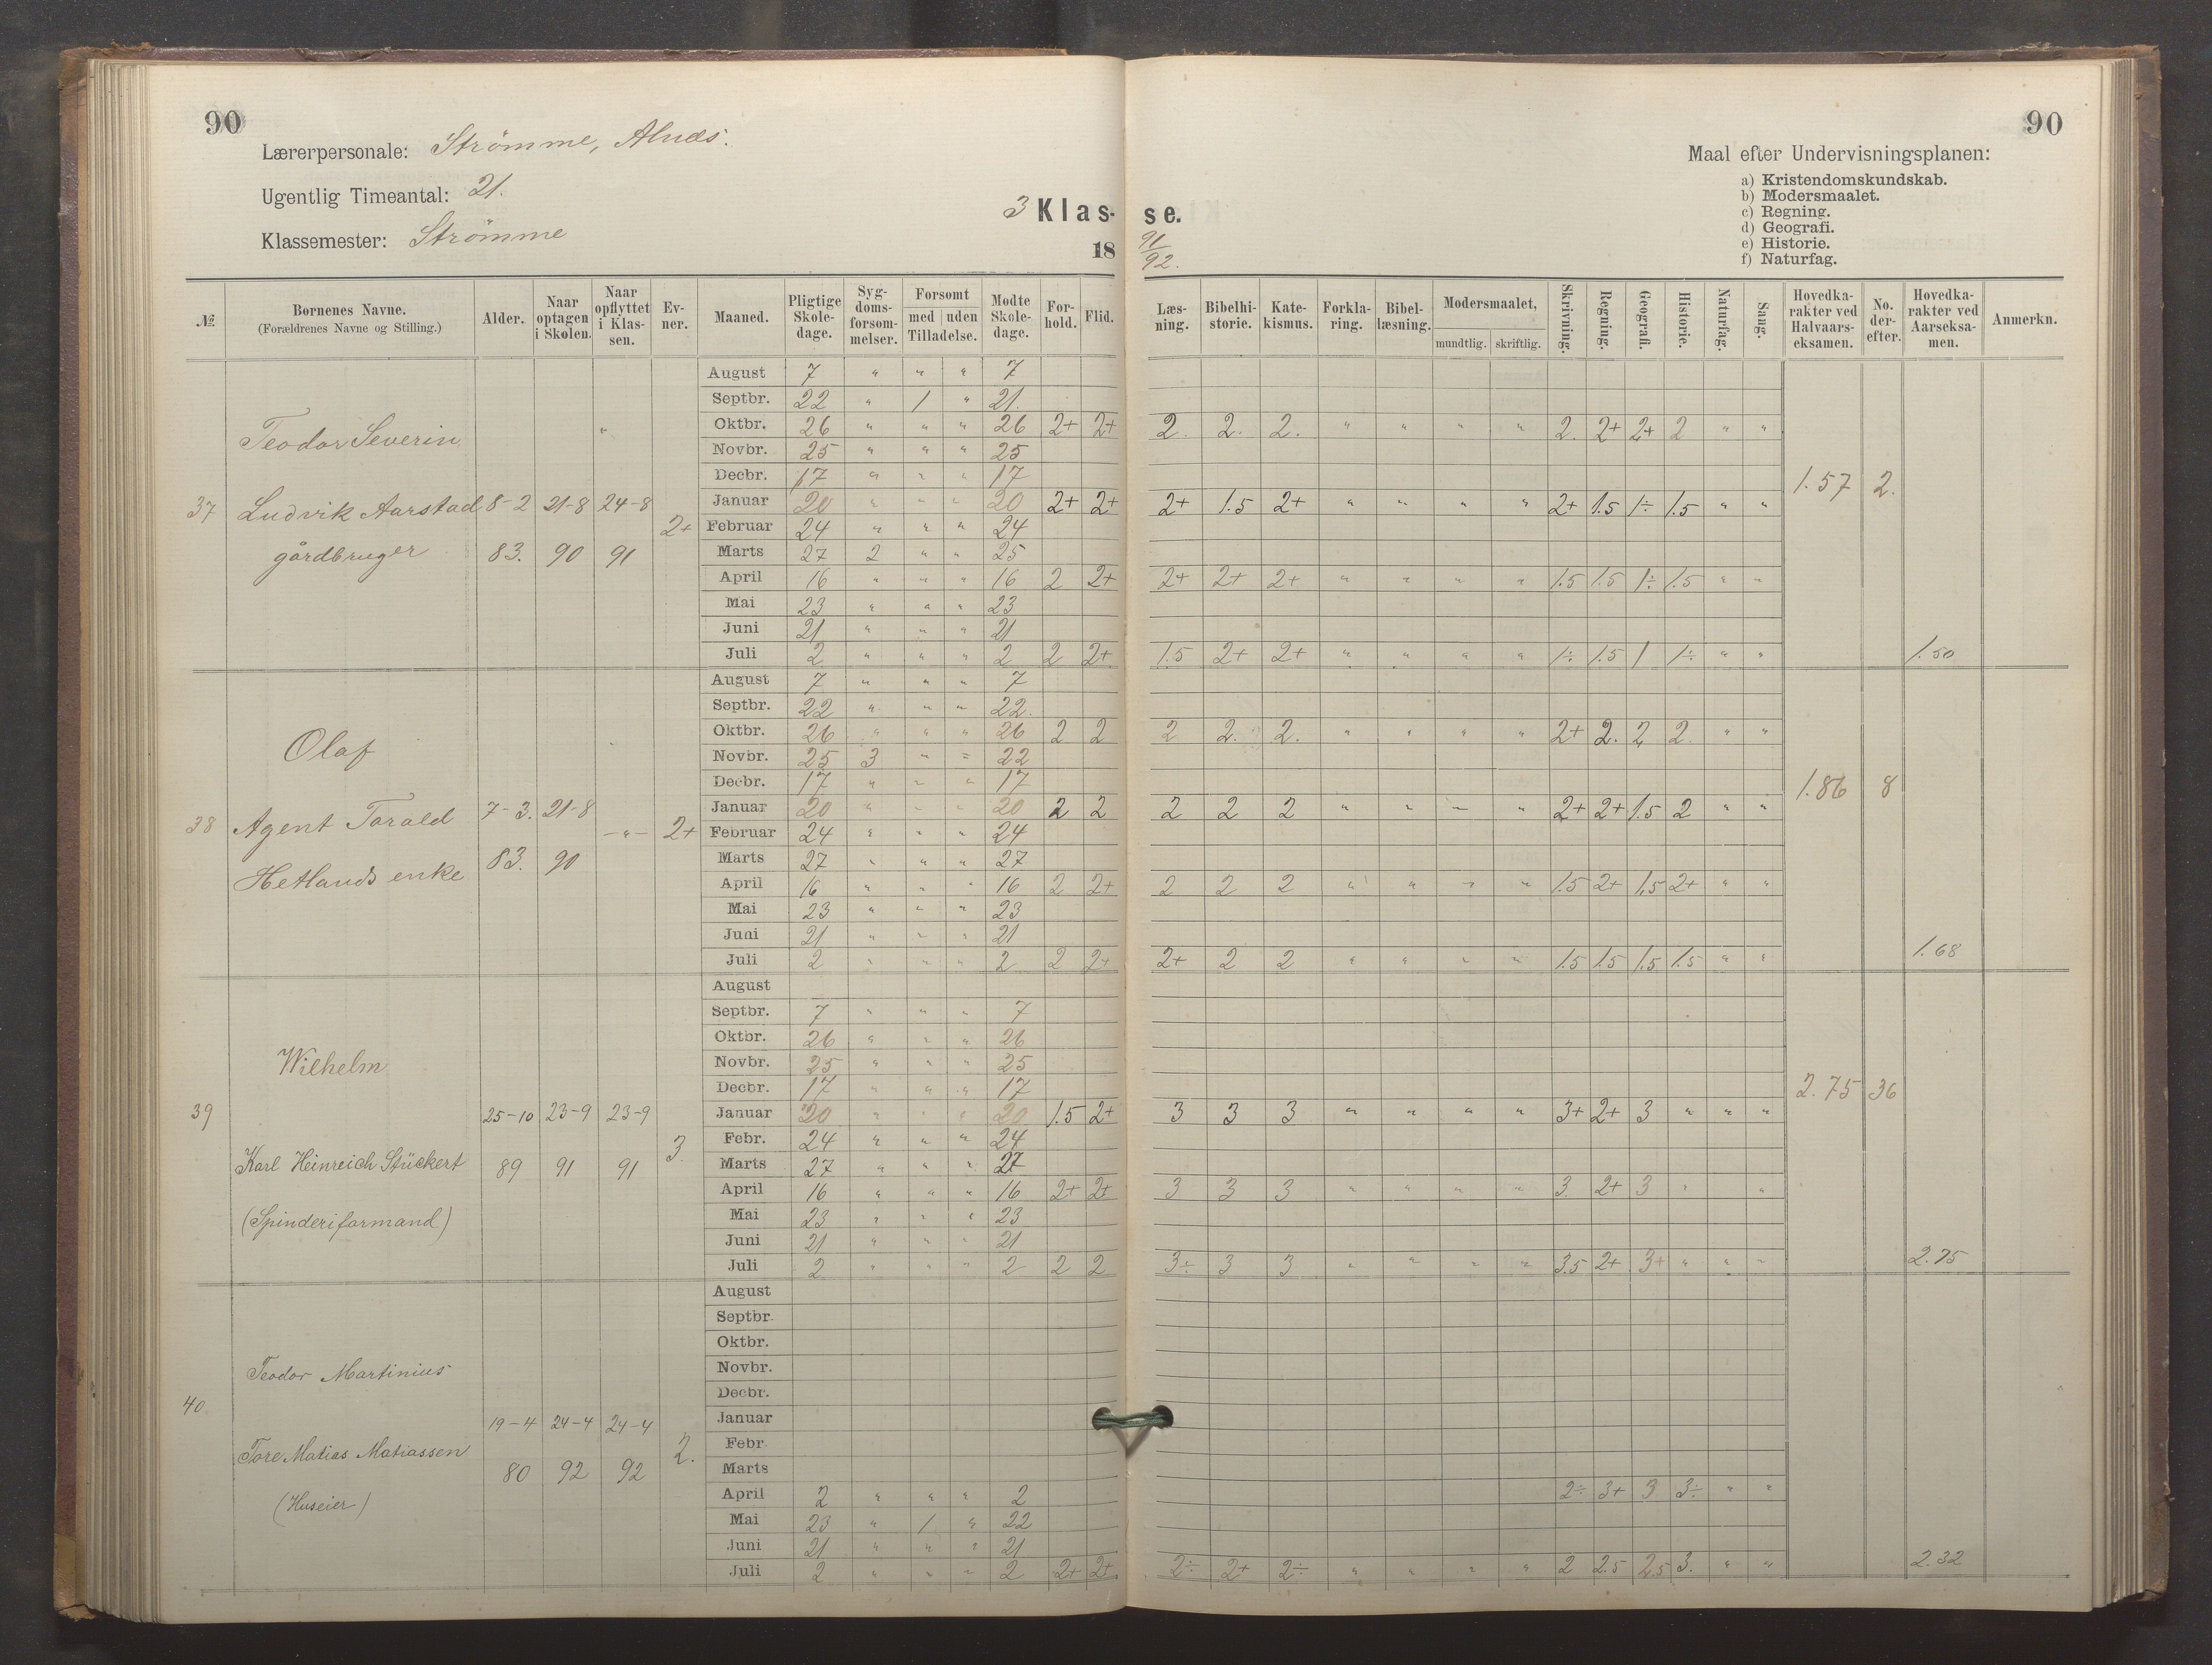 90
90
Lærerpersonale: Strömme, Alnæs.
Ugentlig Timeantal: 21.
Klassemester: Strömme
3 Klas- se.
18 91/92.
Maal efter Undervisningsplanen:
a) Kristendomskundskab.
b) Modersmaalet.
c) Regning.
d) Geografi.
e) Historie.
f) Naturfag.
№ Børnenes Navne. (Forældrenes Navne og Stilling.) Alder. Naar optagen i Skolen. Naar opflyttet i Klassen. Evner. Maaned. Pligtige Skoledage. Sygdomsforsommelser. Forsømt med uden Tilladelse. Mødte Skoledage. Forhold. Flid. Læsning. Bibelhistorie. Katekismus. Forklaring. Bibellæsning. Modersmaalet, mundtlig. skriftlig. Skrivning. Regning. Geografi. Historie. Naturfag. Sang. Hovedkarakter ved Halvaarseksamen. No. derefter. Hovedkarakter ved Aarseksamen. Anmerkn.
37 Teodor Severin
Ludvik Aarstad 8-2 21-8 24-8 2+
gårdbruger 83. 90 91
August 7 " " " 7
Septbr. 22 " 1 " 21.
Oktbr. 26 " " " 26 2+ 2+ 2. 2. 2. " " " " 2. 2+ 2+ 2 " "
Novbr. 25 " " " 25
Decbr. 17 " " " 17 1.57 2.
Januar 20 " " " 20 2+ 2+ 2+ 1.5 2+ " " " " 2+ 1.5 1÷ 1.5 " "
Februar 24 " " " 24
Marts 27 2 " " 25
April 16 " " " 16 2 2+ 2+ 2+ 2+ " " " " 1.5 1.5 1÷ 1.5 " "
Mai 23 " " " 23
Juni 21 " " " 21
Juli 2 " " " 2 2 2+ 1.5 2+ 2+ " " " " 1÷ 1.5 1 1÷ " " 1.50
38 Olaf
Agent Torald 7-3. 21-8 -"- 2+
Hetlands enke 83. 90
August 7 " " " 7
Septbr. 22 " " " 22.
Oktbr. 26 " " " 26 2 2 2 2. 2. " " " " 2+ 2. 2 2. " "
Novbr. 25 3 " = 22
Decbr. 17 " " " 17 1.86 8
Januar 20 " " " 20 2 2 2 2 2 " " " " 2+ 2+ 1.5 2 " "
Februar 24 " " " 24
Marts 27 " " " 27
April 16 " " " 16 2 2+ 2 2 2 " " " " 1.5 2+ 1,5 2+ " "
Mai 23 " " " 23
Juni 21 " " " 21
Juli 2 " " " 2 2 2+ 2+ 2 2 " " " " 1.5 1.5 1.5 1.5 " " 1.68
39 Wilhelm
25-10 23-9 23-9 3.
Karl Heinreich Stückert 89 91 91
(Spinderiformand)
August
Septbr. 7 " " " 7
Oktbr. 26 " " " 26
Novbr. 25 " " " 25
Decbr. 17 " " " 17 2.75 36
Januar 20 " " " 20 1.5 2+ 3 3 3 " " " " 3+ 2+ 3 " " "
Febr. 24 " " " 24
Marts 27 " " " 27
April 16 " " " 16 2+ 2+ 3 3 3 " " " " 3. 2+ 3 " "
Mai 23 " " " 23
Juni 21 " " " 21
Juli 2 " " " 2 2 2 3÷ 3 3 " " " " 3.5 2+ 3+ " " " 2.75
40. Teodor Martinius
19-4 24-4 24-4 2.
Tore Matias Matiassen 80 92 92
(Huseier)
August
Septbr.
Oktbr.
Novbr.
Decbr.
Januar
Febr.
Marts
April 2 " " " 2 2÷ 3+ 3 3÷ " "
Mai 23 " 1 " 22
Juni 21 " " " 21
Juli 2 " " " 2 2+ 2+ 2÷ 2+ 2÷ " " " " 2 2.5 2.5 3. " " 2.32